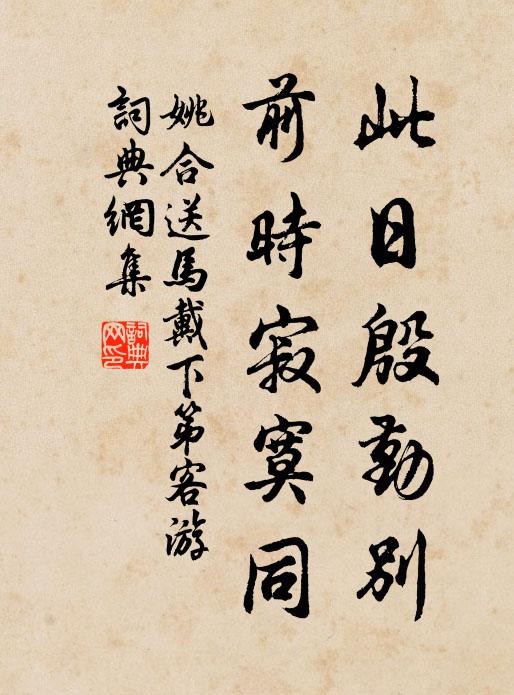 此日殷勤別
前時寂寞同
姚合送馬戴下第客游
詞典網集
詞典網印